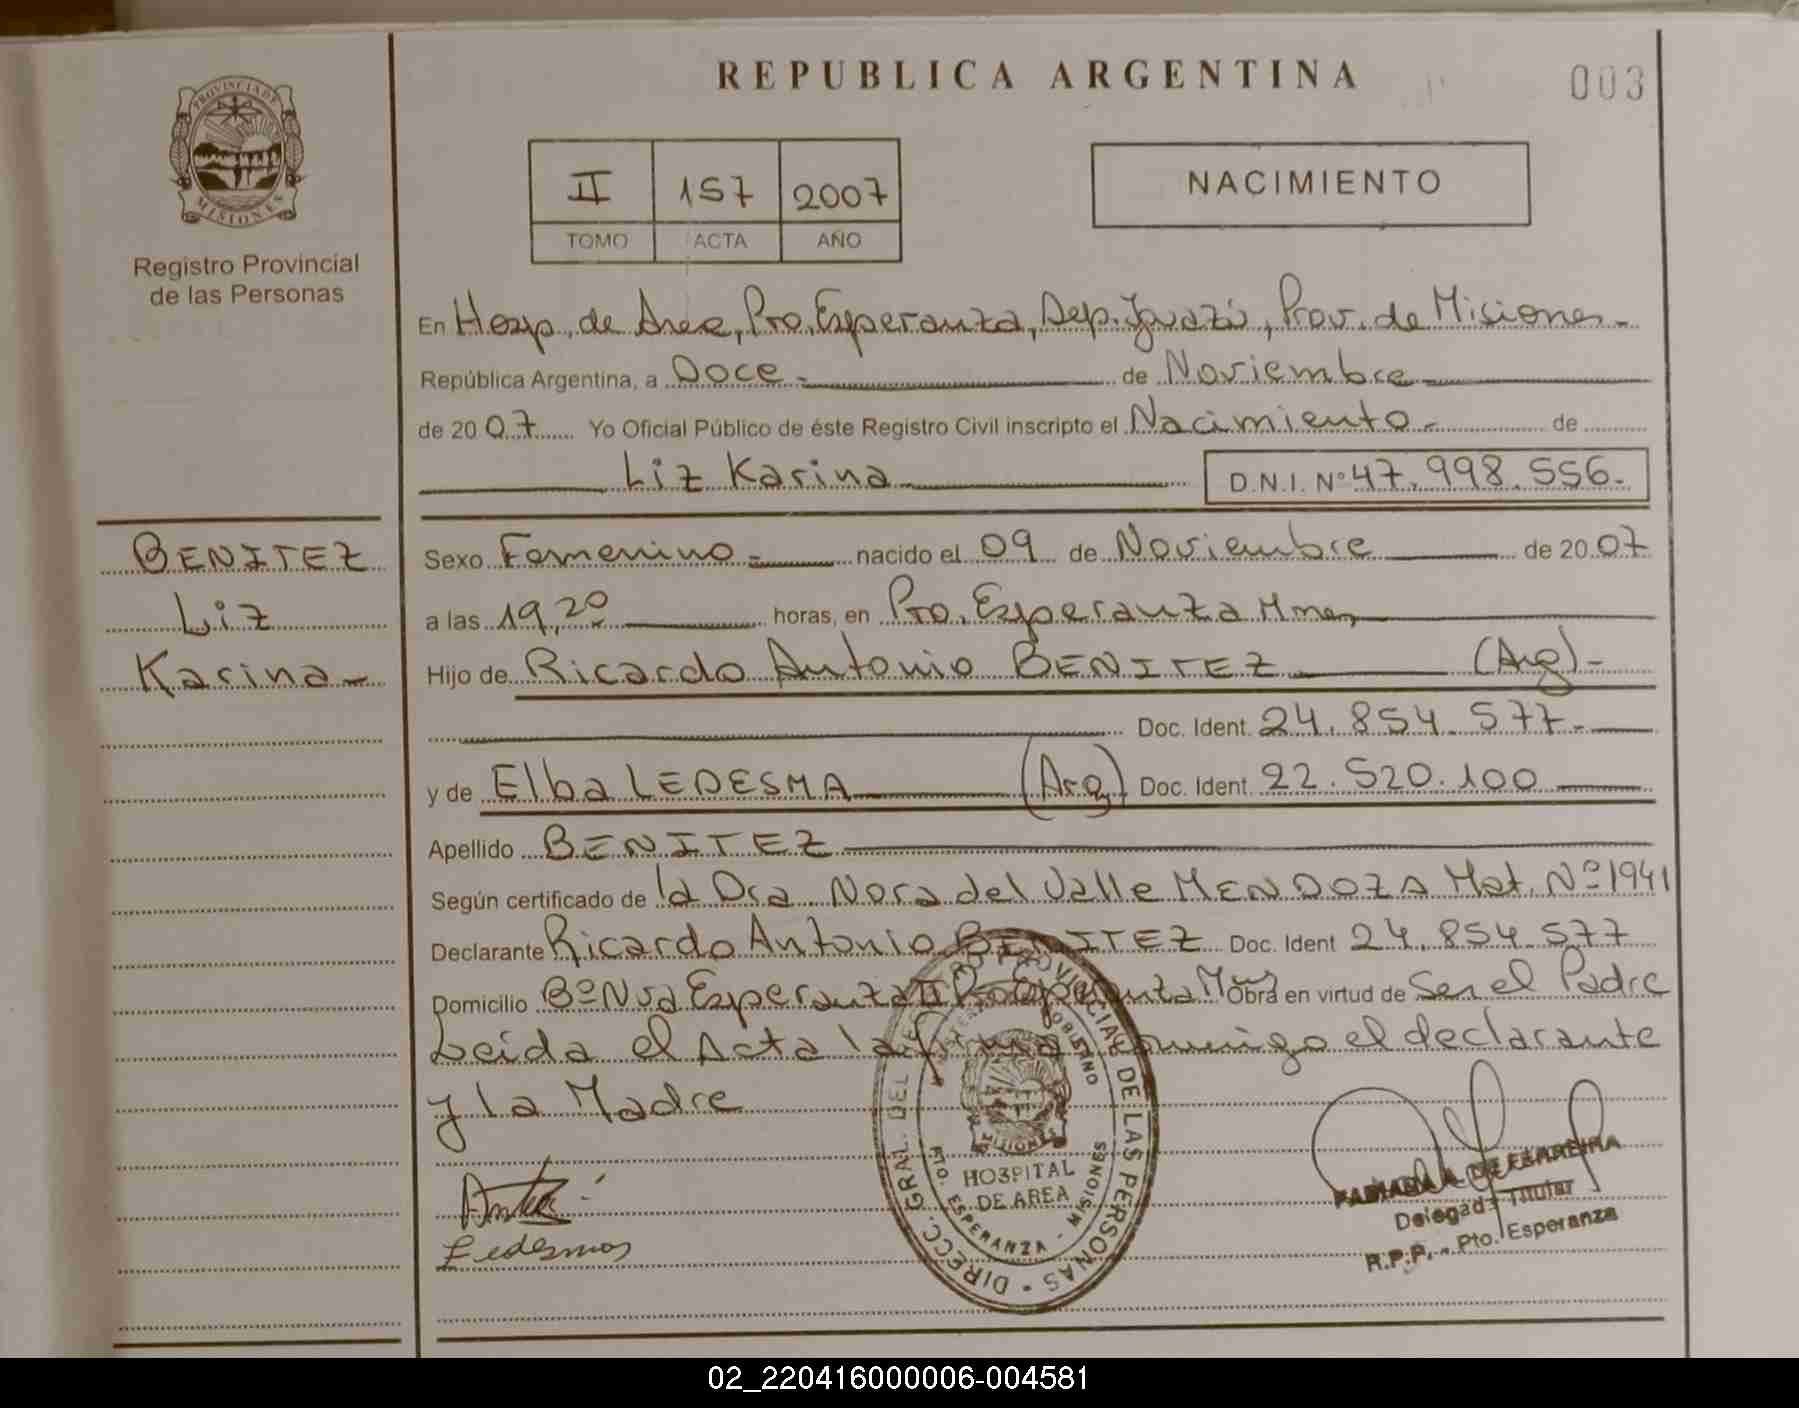 REPUBLICA ARGENTINA
003
PROVINCIA DE
MISIONES
Registro Provincial
de las Personas
II 157 2007
TOMO ACTA AÑO
NACIMIENTO
En Hosp. de Area, Pto. Esperanza, Dep. Iguazú, Prov. de Misiones.-
República Argentina, a Doce.- de Noviembre
de 2007 Yo Oficial Público de éste Registro Civil inscripto el Nacimiento.- de
Liz Karina D.N.I. Nº 47.998.556.-
BENITEZ
Liz
Karina-
Sexo Femenino.- nacido el 09 de Noviembre de 2007
a las 19,20 horas, en Pto. Esperanza Mnes,
Hijo de Ricardo Antonio BENITEZ (Arg)-
Doc. Ident. 24.854.577.-
y de Elba LEDESMA (Arg) Doc. Ident. 22.520.100
Apellido BENITEZ
Según certificado de la Dra. Nora del Valle MENDOZA Mat. Nº 1941
Declarante Ricardo Antonio BENITEZ Doc. Ident 24.854.577
Domicilio Bº Nva Esperanza II Pto Esperanza Mns Obra en virtud de Ser el Padre
Leida el Acta la firma conmigo el declarante
y la Madre
Ledesma
DIRECC. GRAL. DEL REG. PROVINCIAL DE LAS PERSONAS
GOBIERNO
MISIONES
HOSPITAL
DE AREA
PTO. ESPERANZA - MISIONES
FABIANA A. DE FERREIRA
Delegada Titular
R.P.P. - Pto. Esperanza
02_220416000006-004581